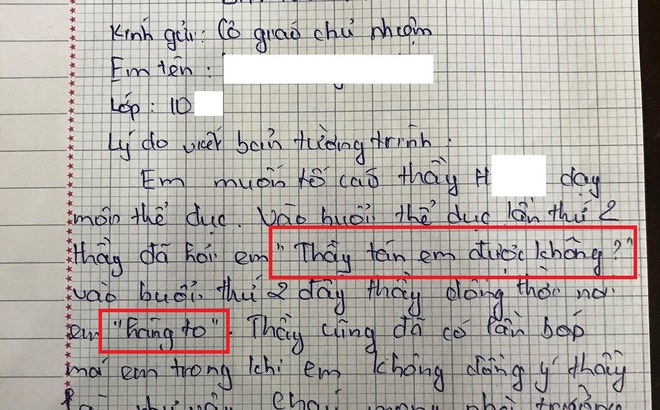 Kính gửi: Cô giáo chủ nhiệm
Em tên:
Lớp: 10
Lý do viết bản tường trình:
Em muốn tố cáo thầy H dạy
môn thể dục. Vào buổi thể dục lần thứ 2
thầy đã hỏi em "Thầy tán em được không?"
vào buổi thứ 2 đấy thầy đồng thời nói
em "hàng to". Thầy cũng đã có lần bóp
má em trong khi em không đồng ý thầy